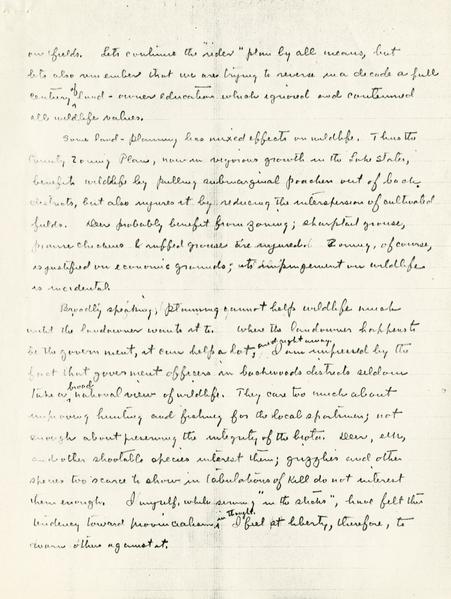 our fields. Lets continue the "rider" plan by all means, but
lets also remember that we are trying to reverse in a decade a full
century of land-owner education which ignored and contemned
all wildlife values.
Some land-planning has mixed effects on wildlife. Thus the
County Zoning Plans, now in vigorous growth in the Lake States,
benefits wildlife by pulling submarginal poachers out of back
districts, but also injures it by reducing the interspersion of cultivated
fields. Deer probably benefit from zoning; sharptail grouse,
prairie chickens & ruffed grouse are injured. Zoning, of course,
is justified on economic grounds; its impingement on wildlife
is incidental.
Broadly speaking, planning cannot help wildlife much
until the landowner wants it to. Where the landowner happens to
be the government, it can help a lot, and right away. I am impressed by the
fact that government officers in backwoods districts seldom
take a broad national view of wildlife. They care too much about
improving hunting and fishing for the local sportsmen; not
enough about preserving the integrity of the biota. Deer, elk,
and other shootable species interest them; grizzlies and other
species too scarce to show in tabulations of kill do not interest
them enough. I myself, while serving "in the sticks", have felt this
tendency toward provincialism in thought. I feel at liberty, therefore, to
warn others against it.